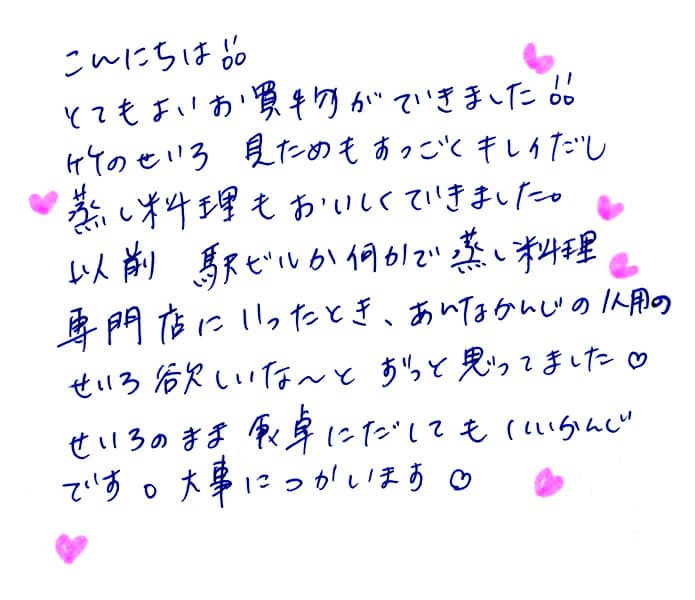 こんにちは!!
とてもよいお買物ができました!!
竹のせいろ 見ためもすっごくキレイだし
蒸し料理もおいしくできました。
以前 駅ビルか何かで蒸し料理
専門店にいったとき、あんなかんじの1人用の
せいろ欲しいな〜と ずっと思ってました♡
せいろのまま食卓にだしてもいいかんじ
です。大事につかいます♡